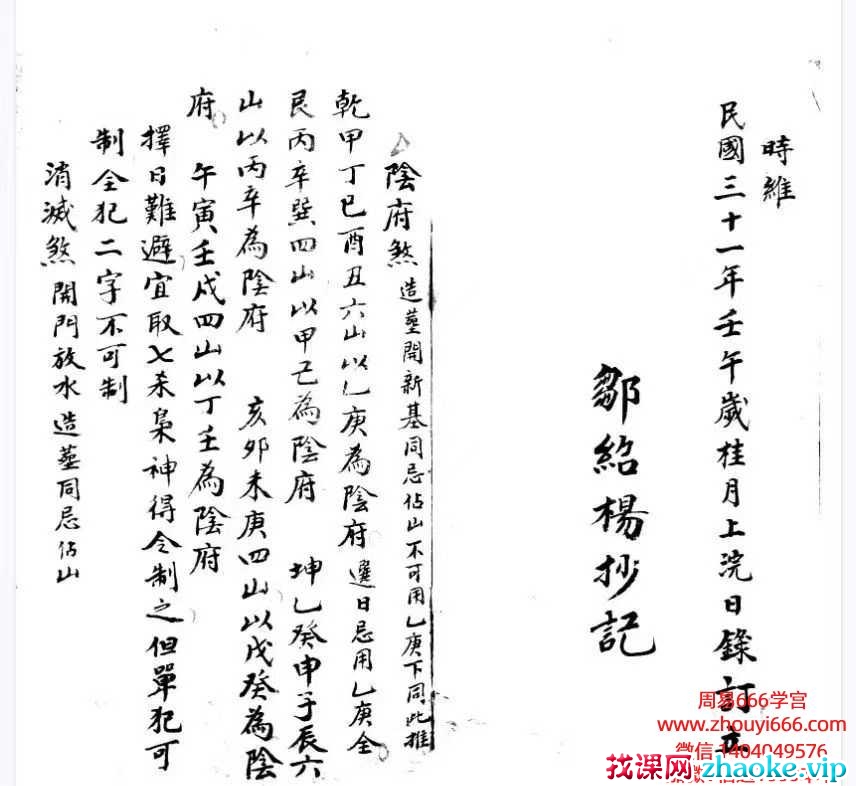 時維
民國三十一年壬午歲桂月上浣日錄訂
鄒紹楊抄記
陰府煞 造墓開新基同忌占山不可用乙庚下同此推
乾甲丁巳酉丑六山以乙庚為陰府 選日忌用乙庚全
艮丙辛巽四山以甲己為陰府 坤乙癸申子辰六
山以丙辛為陰府 亥卯未庚四山以戊癸為陰
府 午寅壬戌四山以丁壬為陰府
擇日難避宜取七杀梟神得令制之但單犯可
制全犯二字不可制
消滅煞 開門放水造墓同忌占山
周易666学宫
www.zhouyi666.com
微信1404049576
找课网zhaoke.vip